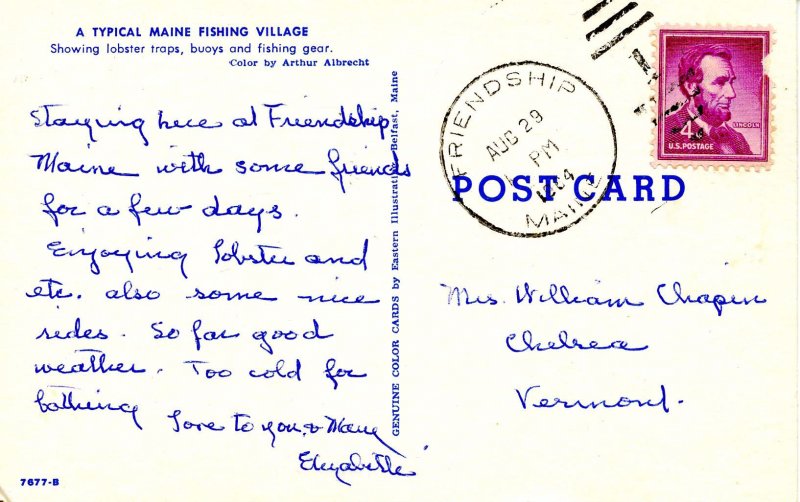 A TYPICAL MAINE FISHING VILLAGE
Showing lobster traps, buoys and fishing gear.
Color by Arthur Albrecht
Staying here at Friendship
Maine with some friends
for a few days.
Enjoying lobster and
etc. also some nice
rides. So far good
weather. Too cold for
bathing
Love to you & Mary
Elizabeth
7677-B
GENUINE COLOR CARDS by Eastern Illustrating, Belfast, Maine
FRIENDSHIP
AUG 29
PM
MAINE
4¢
LINCOLN
U.S. POSTAGE
POST CARD
Mrs. William Chapin
Chelsea
Vermont.